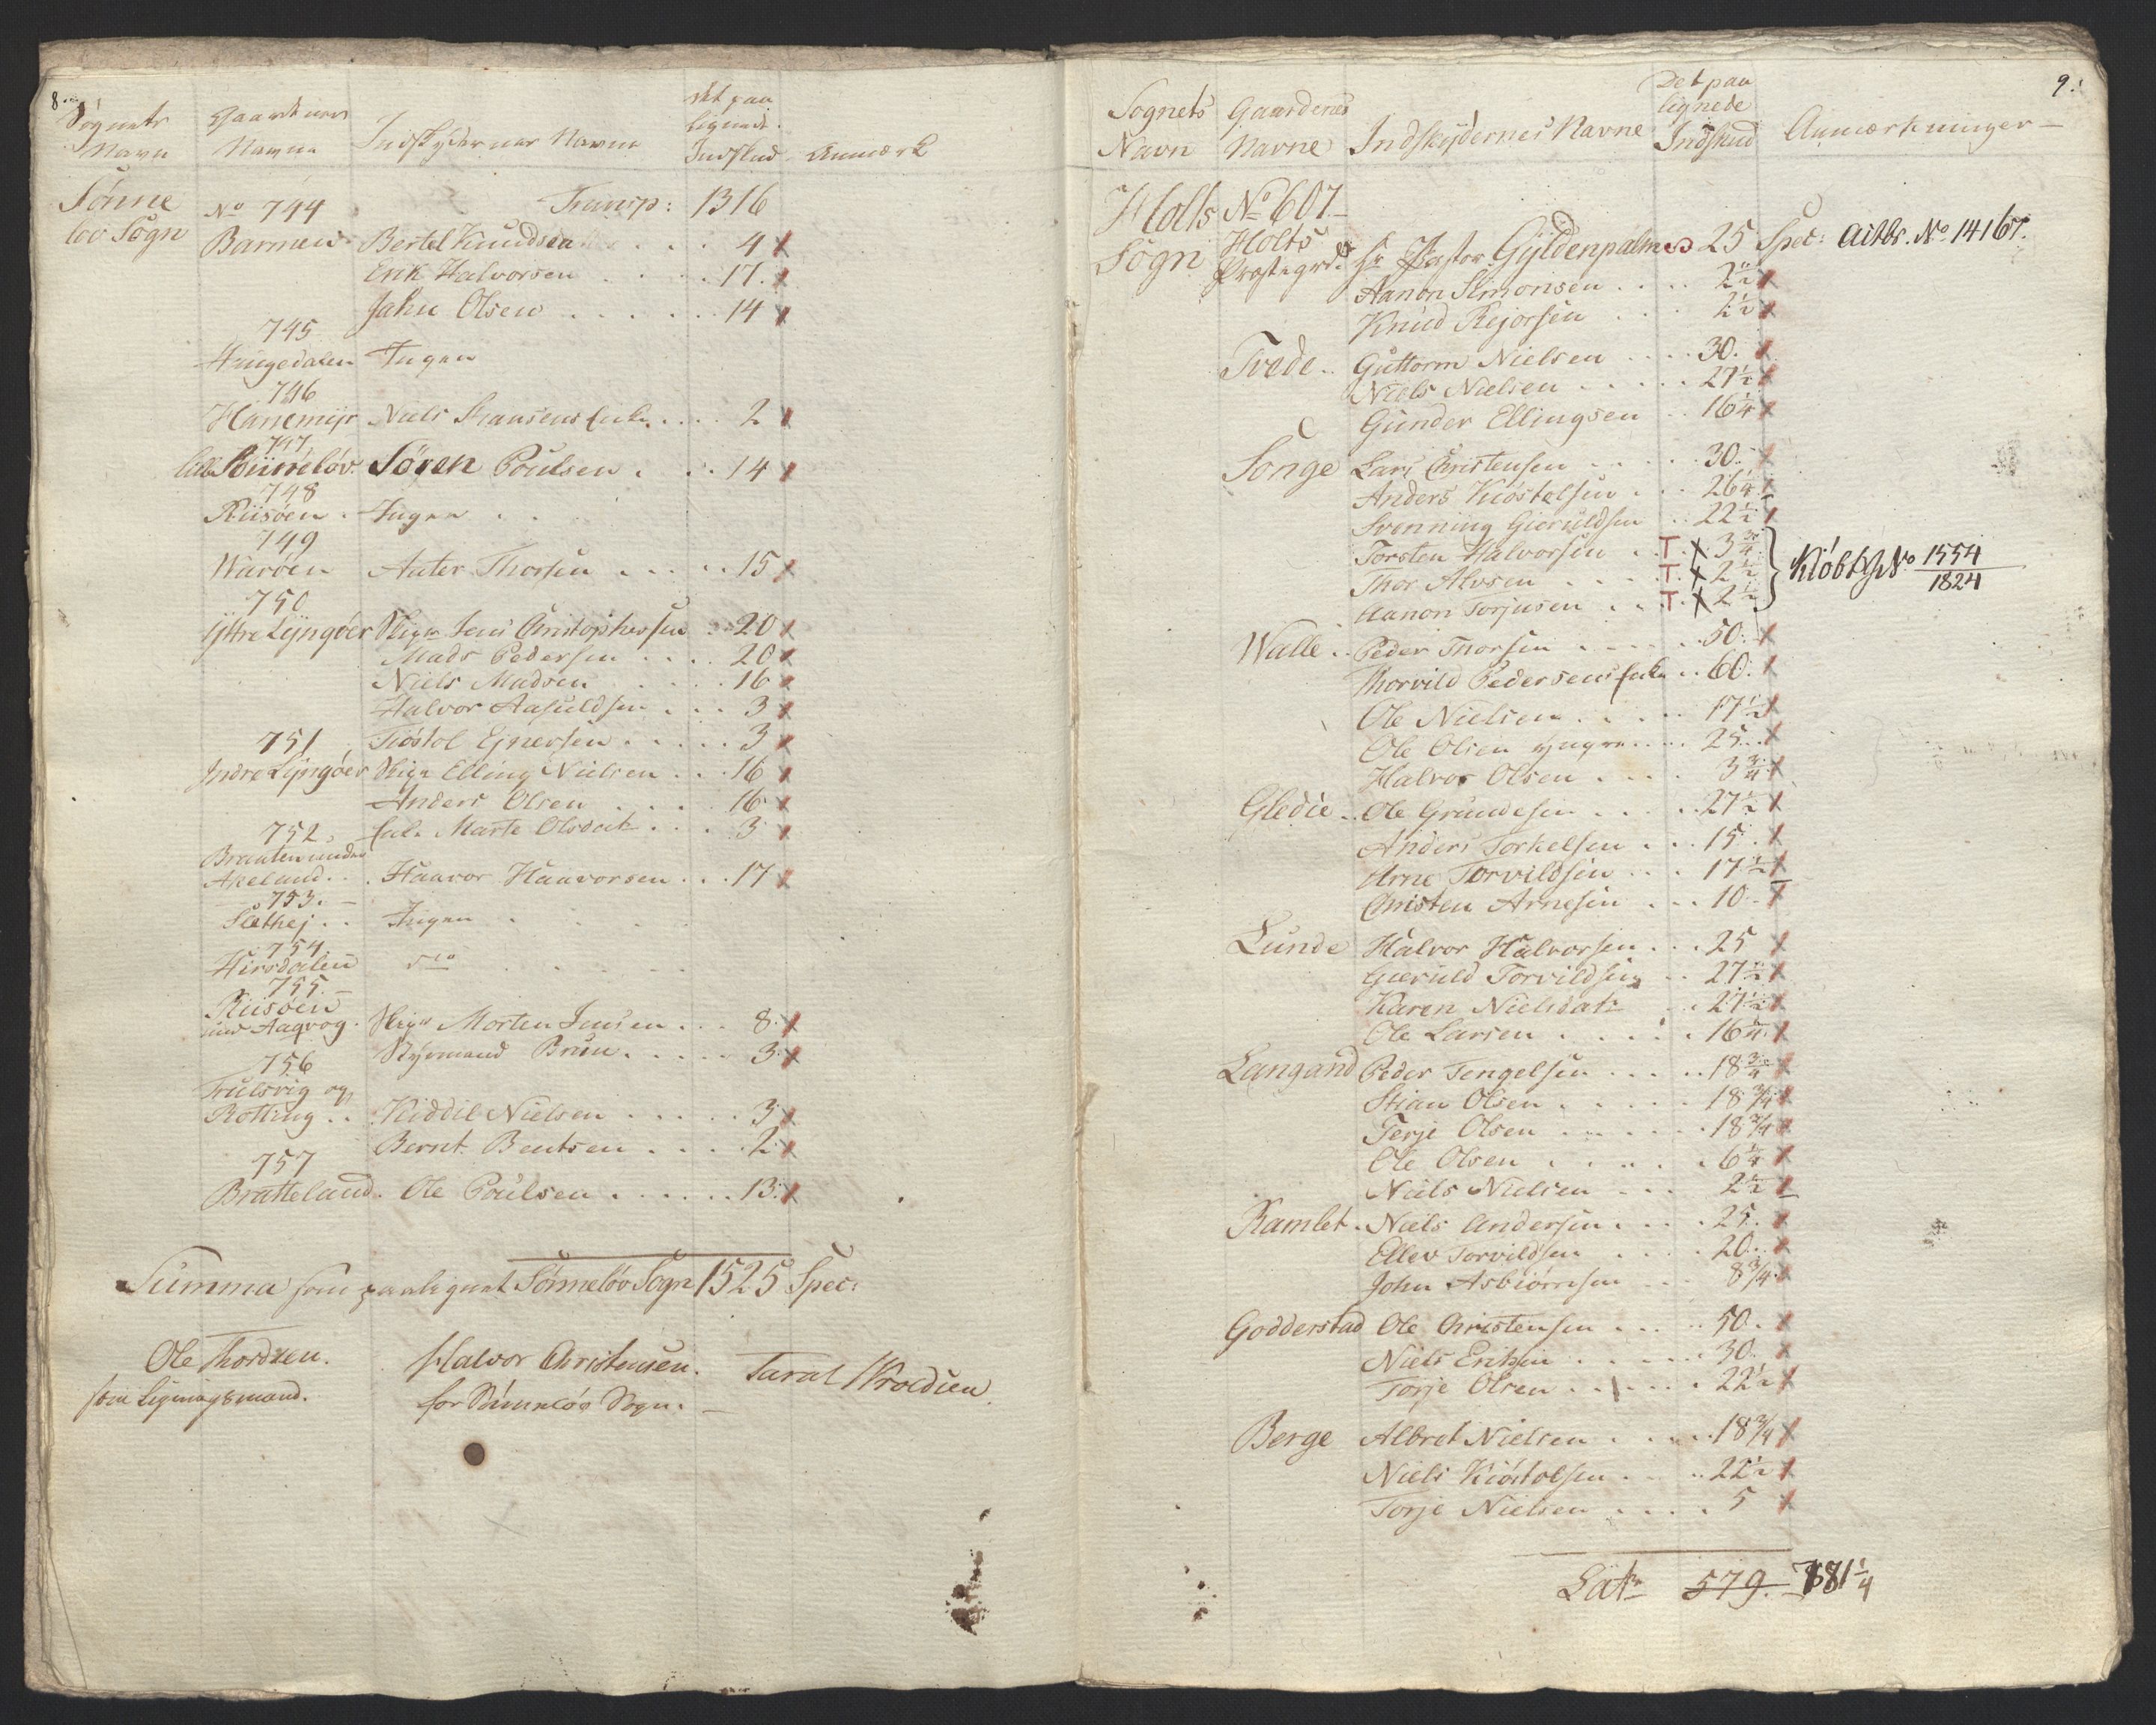 8.
Sognets Navn Gaardenes Navne Indskydernes Navne Det paalignede Indskud Anmærk
Sønneløv Sogn
No 744 Transp: 1316
Barmen Bertel Knudsen . . . 4
Erik Halvorsen . . 17.
Jahn Olsen . . . . . 14
745
Haugedalen Ingen
746
Hanemyr Niels Hansens Enke . . . 2
747
lille Sønneløv Søren Poulsen . . . 14
748
Riisøen . Ingen . .
749
Warøen Anter Thorsen . . . . 15
750
Ÿttre Lyngøer Skipr Jens Christophersen . 20
Mads Pedersen . . . . 20
Niels Madsen . . . 16
Halvor Aasuldsen . . . 3
Tiøstol Ejnersen . . . . . 3
751
Indre Lyngøer Skipr Elling Nielsen . . . 16
Anders Olsen . . . . 16
Enke Marte Olsdatr . . . 3
752
Brauten under
Akeland . . . Haavor Haavorsen . . . 17
753.
Slethej . . Ingen . . .
754
Hirsdalen dto . . .
755.
Riisøen
und Aagvog . Skipr Morten Jensen . . . 8.
Styrmand Brun . . . . . 3
756
Trulsvig og
Rotting . . Kiddil Nielsen . . . . . 3
Bernt Bentsen . . . . 2
757
Bratteland . Ole Poulsen . . . . . . 13.
Summa som paalignet Sønneløv Sogn 1525 Spec:
Ole Thordsen. Halvor Christensen. Taral Wroldsen
som Ligningsmand. for Sønneløv Sogn. —
9.
Sognets Navn Gaardenes Navne Indskydernes Navne Det paalignede Indskud Anmærkninger —
Holts Sogn
No 607
Holts Præstegrd. Hr Pastor Gyldenpalm 25 Spec: Actbr. No 14167.
Aanon Simonsen . . . . 2½
Knud Rejorsen . . . 2½
Tvede . . Guttorm Nielsen . . . . 30.
Niels Nielsen . . . . . 27½
Gunder Ellingsen . . 16¼
Songe Lars Christensen . . . . 30.
Anders Kiøstelsen . . . 26¼
Svenning Gieruldsen . . 22½
Torsten Halvorsen . . T. X 3¾
Thor Alvsen . . . . T. X 2½ } Kiøbt No 1554/1824
Aanon Torjusen . . . T. X 2½
Walle . . Peder Thorsen . . . . . 50.
Thorvild Pedersens Enke . . 60.
Ole Nielsen . . . . . 17½
Ole Olsen yngre . . . . 25. .
Halvor Olsen . . . . 3¾
Gledie . . Ole Grundesen . . . . 27½
Anders Torkelsen . . . 15.
Arne Torvildsen . . . 17½
Christen Arnesen . . . 10 . .
Lunde Halvor Halvorsen . . . 25
Gieruld Torvildsen . . 27½
Karen Nielsdatr . . 27½
Ole Larsen . . . . . 16¼
Langand Peder Tengelsen . . . . . 18¾
Stian Olsen . . . . . 18¾
Terje Olsen . . . . . 18¾
Ole Olsen . . . . . 6¼
Niels Nielsen . . . 2½
Ramlet . Niels Andersen . . . . 25.
Ellev Torvildsen . . . . 20. .
John Asbiørnsen . . . 8¾
Godderstad Ole Christensen . . . . . 50.
Niels Eriksen . . . . . 30.
Torje Olsen . . . . . 22½
Berge Albret Nielsen . . . . . 18¾
Niels Kiøstolsen . . . . 22½
Torje Nielsen . . . . . 5
Latr 579. 781¼